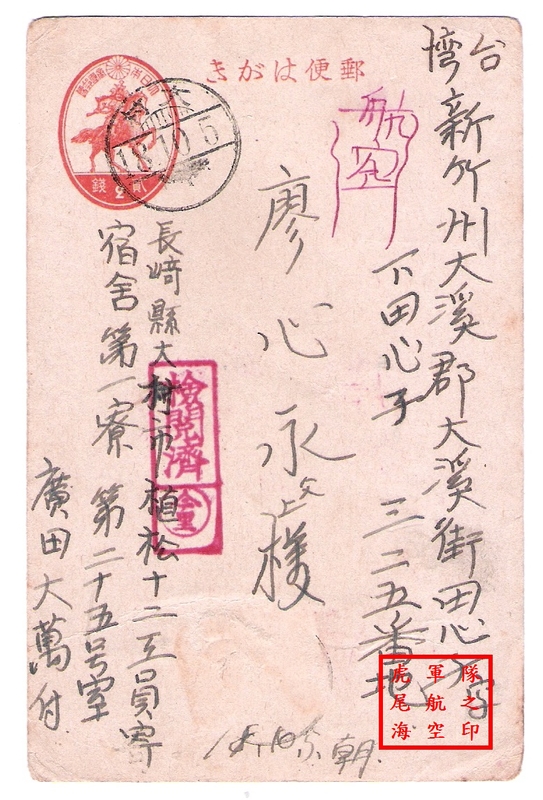 郵便はがき
大日本帝国郵便
貳 2 錢
18.10.5
航空
台湾新竹州大溪郡大溪街田心子字
下田心子 三二五番地
廖心永
様
長崎縣大村市植松十二工員寄
宿舍第一寮 第二十五号室
廣田大萬付
検閲濟
虎尾海
軍航空
隊之印
朝